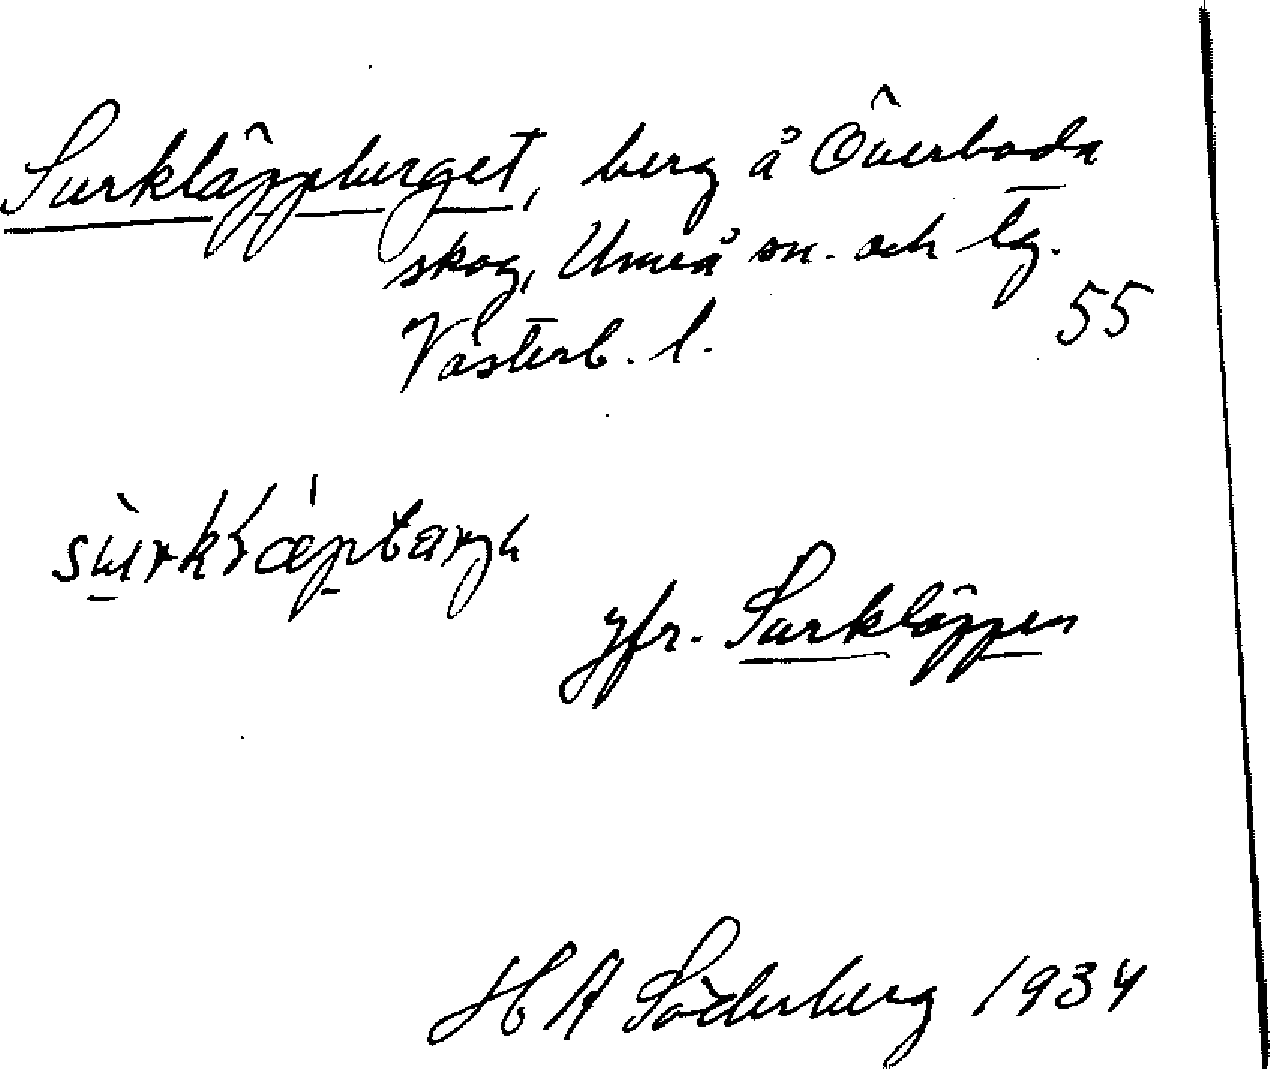 Surkläppberget, berg å Överboda
skog, Umeå sn. och lg.
Västerb. l.
55
jfr. Surkläppen
H A Söderberg 1934